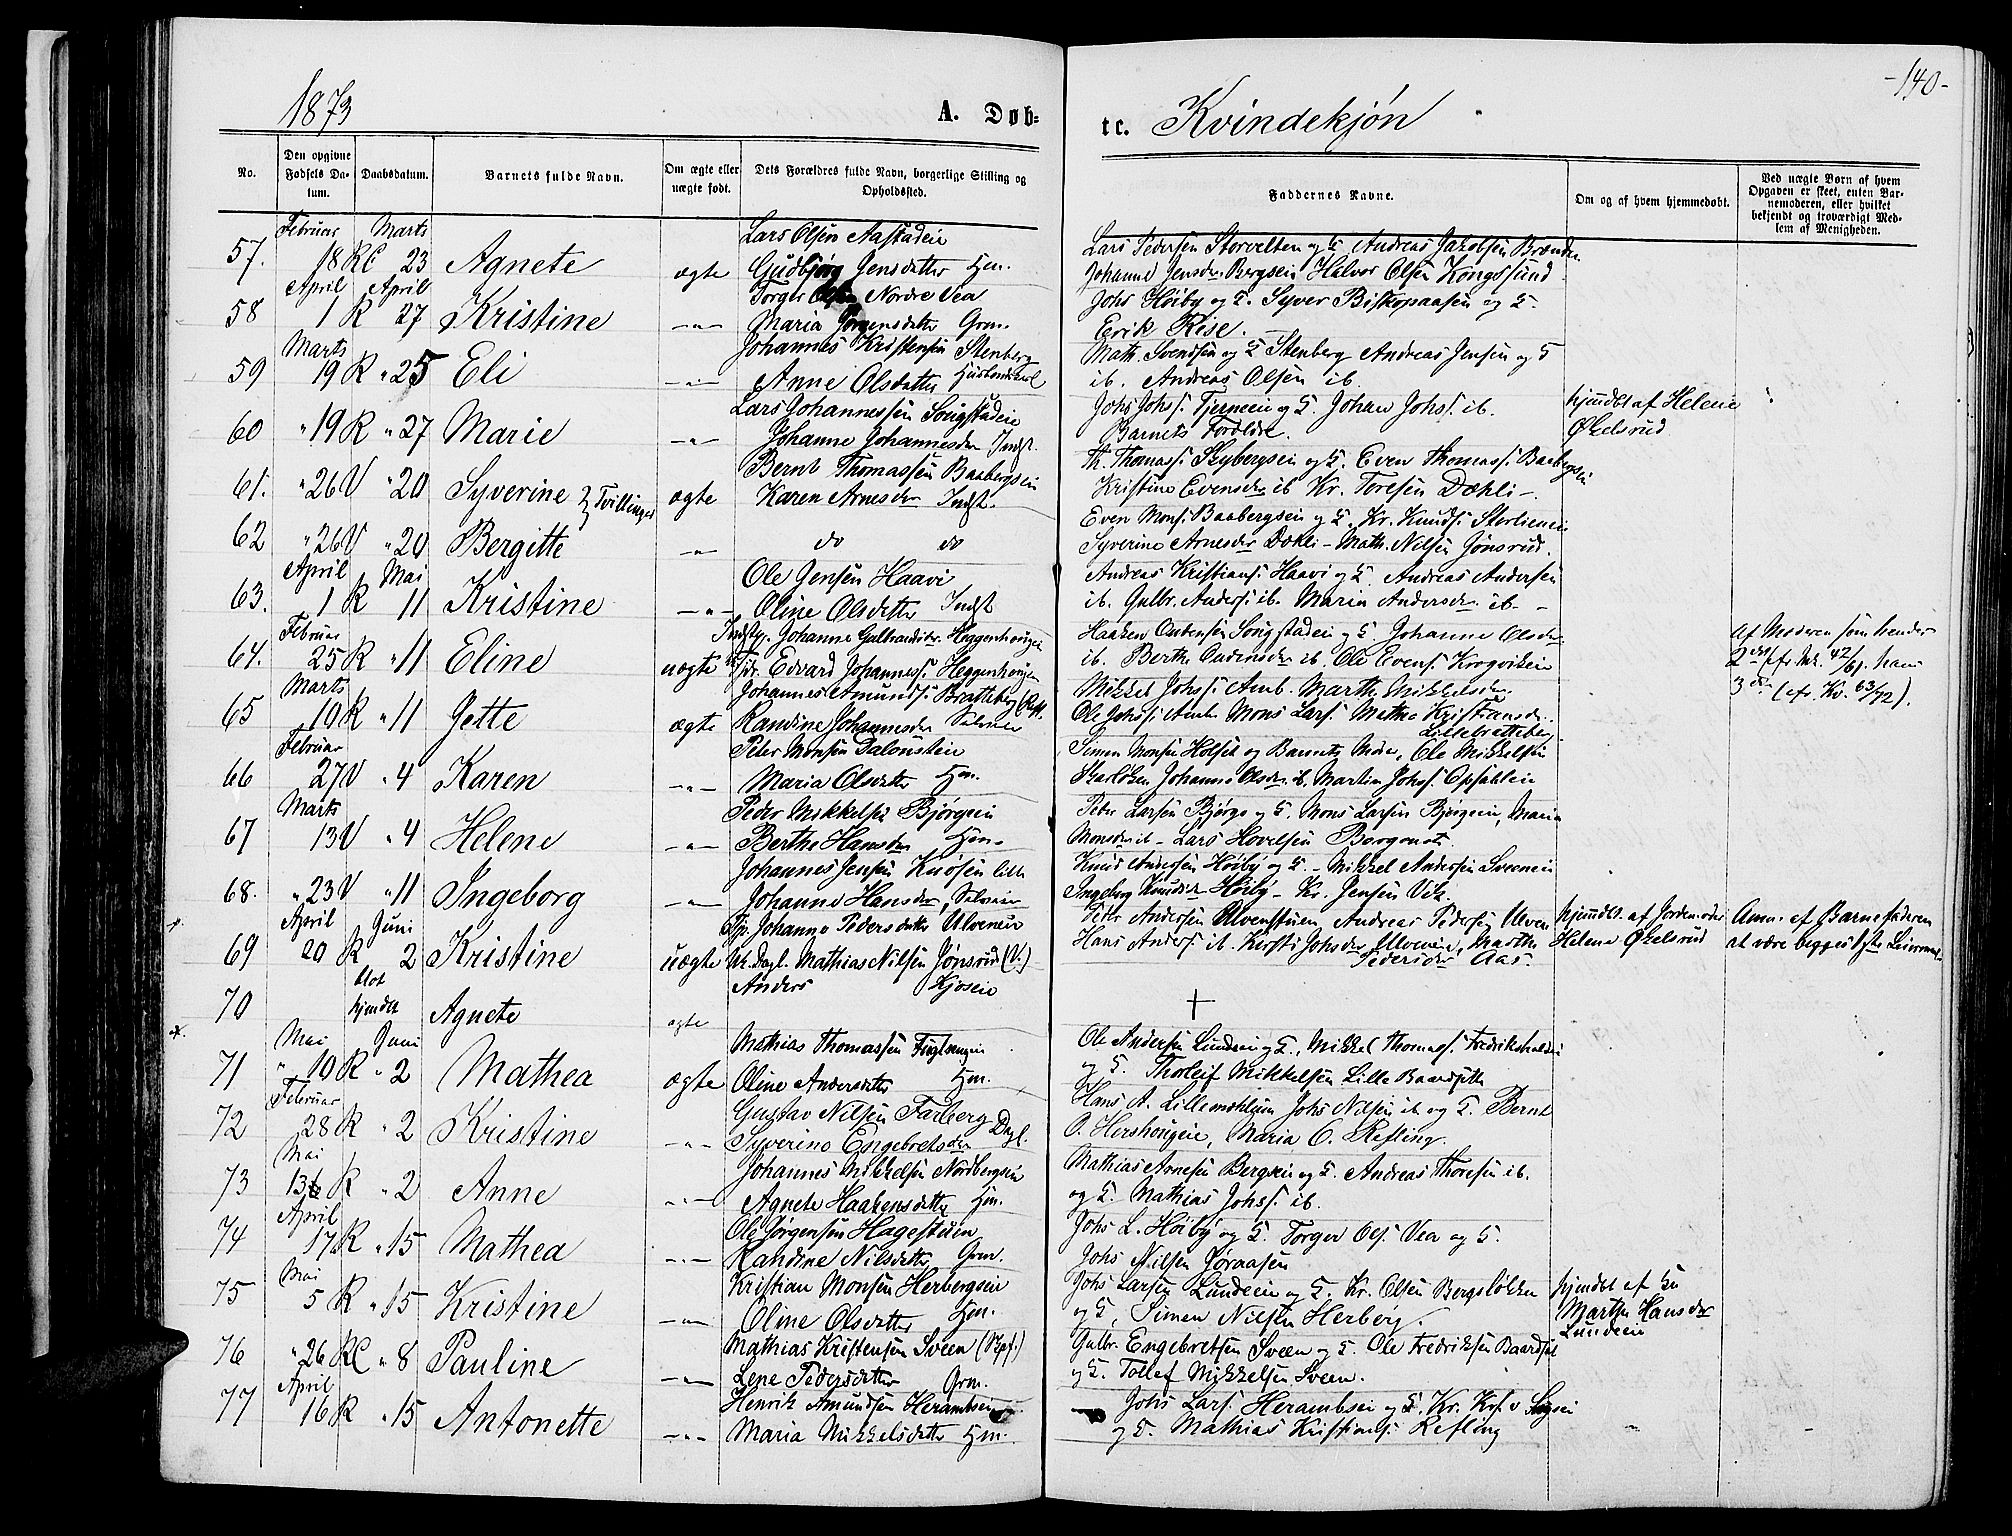 -140-
1873
A. Døb-
te. Kvindekjøn
No.
Den opgivne Fødsels Datum.
Daabsdatum.
Barnets fulde Navn.
Om ægte eller uægte født.
Dets Forældres fulde Navn, borgerlige Stilling og Opholdssted.
Faddernes Navne.
Om og af hvem hjemmedøbt.
Ved uægte Børn af hvem Opgaven er skeet, enten Barnemoderen, eller hvilket bekjendt og troværdigt Medlem af Menigheden.
Februar Marts Lars Olsen Aastadeie Lars Pedersen Storvelten og F. Andreas Jakobsen Brænden
57. 18 RE 23 Agnete ægte Gudbjørg Jensdatter Hm. Johanne Jensdr Bergseie Halvor Olsen Kongssund
April April Torger Olsen Nordre Vea Johs Høiby og F. Syver Biskopaasen og F.
58 1 R 27 Kristine -"- Maria Jørgensdatter Grm. Erik Rise.
Marts Johannes Kristensen Stenberg Math. Svendsen og F Stenberg Andreas Jensen og F
59 19 R " 25 Eli -"- Anne Olsdatter ib. Andreas Olsen ib
Lars Johannessen Songstadeie Johs Johs. Tjerneeie og F. Johan Johs. ib. hjmdbt af Helene
60 " 19 R " 27 Marie -"- Johanne Johannesdr Indst. Barnets Forældre. Økelsrud
Bernt Thomassen Baabergseie Th. Thomas. Skybergseie og F. Even Thomas. Baabergseie
61. " 26 V " 20 Syverine } Tvillinger ægte Karen Arnesdr Indst. Kristine Evensdr ib Kr. Toresen Dæhli -.
Even Mons. Baabergseie og F. Kr. Knuds. Storlieneie
62 " 26 V " 20 Bergitte -"- do do Syverine Arnesdr Dæhli - Math. Nilsen Jønsrud.
April Mai Ole Jensen Haavi Andreas Kristians. Haavi og F. Andreas Andersen
63. 1 R 11 Kristine -"- Oline Olsdatter Indst ib. Gulbr. Anders. ib. Maria Andersdr ib. -
Februar Indstp. Johanne Gulbrandsdr. Heggenhougen Haaken Audensen Songstadeie og F. Johanne Olsdr Af Moderen som hendes
64. 25 R " 11 Eline uægte Edvard Johannes. Heggenhougen ib. Berthe Audensdr ib. Ole Evens. Korgvikeie 2den (cfr. Mk. 42/61. hans
Marts Johannes Amunds. Bratteberg Mikkel Johs. Amb. Marthe Mikkelsdr. 3die (cfr. Kv. 63/72).
65 19 R " 11 Jette ægte Randine Johannesdr Selveier Ole Johs. Mons Lars. Mathea Kristiansdr. Lillebratteberg
Februar Peter Monsen Dalensteie Simen Monsen Holset og Barnets Moder, Ole Mikkelsen
66 27 V " 4 Karen -"- Maria Olsdatter Hm. Johanne Olsdr ib, Martin Johs. Opsahleie
Marts Peder Mikkelsen Bjørgeeie Peter Larsen Bjørge og F. Mons Larsen Bjørgeeie, Maria
67 13 V " 4 Helene -"- Berthe Hansdr Hm. Monsdr ib - Lars Hovelsen
Johannes Jensen Knøsen lille Knud Andersen Høiby og F. - Mikkel Andersen Sveeneie
68. " 23 V " 11 Ingeborg -"- Johanne Hansdr, Selveier Ingeborg Knudsdr Høiby - Kr. Jensen Vik
April Juni Tjp. Johanne Pedersdatter Ulveneie Peter Andersen Ulvenstuen Andreas Pedersen Ulven hjmdbt. af Jordemoder Anm. af Barnefaderen
69 20 R 2 Kristine uægte Uk. Dagl. Mathias Nilsen Jønsrud (V.) Hans Anders. ib. Kirsti Johsdr Ulveneie, Marthe Pedersdr Aas. Helene Økelsrud at være begges 1ste Leiermaal
70 blot hjmdbt Agnete ægte Anders Kjoseie +
Mai Juni Mathias Thomassen Fuglsangeie Ole Andersen Lundeie og F., Mikkel Thomas. Fredrikshaldeie
71 " 10 R " 2 Mathea ægte Oline Andersdatter Hm. og F. Thorleif Mikkelsen Lille Baardseth
Februar Gustav Nilsen Farberg Dagl. Hans A. Lillemohlum Johs Nilsen ib og F. Bernt
72 28 R " 2 Kristine -"- Syverine Engebretsdr O. Hershougeie, Maria O. Refling.
Mai Johannes Mikkelsen Nordbergseie Mathias Arnesen Bergseie og F. Andreas Thoresen ib.
73 13 R " 2 Anne -"- Agnete Haakensdatter Hm. og F. Mathias Johs. ib.
April Ole Jørgensen Hagestuen Johs L. Høiby og F. Torger Ols. Vea og F.
74 17 R " 15 Mathea -"- Randine Nilsdatter Grm. Johs Nilsen Jøraasen
Mai Kristian Monsen Herbergseie Johs Larsen Lundeie og F. Kr. Olsen Bergsløkken hjmdbt af En
75 5 R " 15 Kristine -"- Oline Olsdatter Hm. og F, Simen Nilsen Herberg. Marthe Hansdr Lundeie
Mathias Kristensen Sveen Gulbr. Engebretsen Sveen og F. Ole Fredriksen Baardset
76 " 26 RE " 8 Pauline -"- Lene Pedersdatter Grm. og F. Tollef Mikkelsen Sveen.
April Henrik Amundsen Herambseie Johs Lars. Herambseie og F. Kr. Krs.
77 16 R " 15 Antonette -"- Maria Mikkelsdatter Hm. og F. Mathias Kristians. Refling